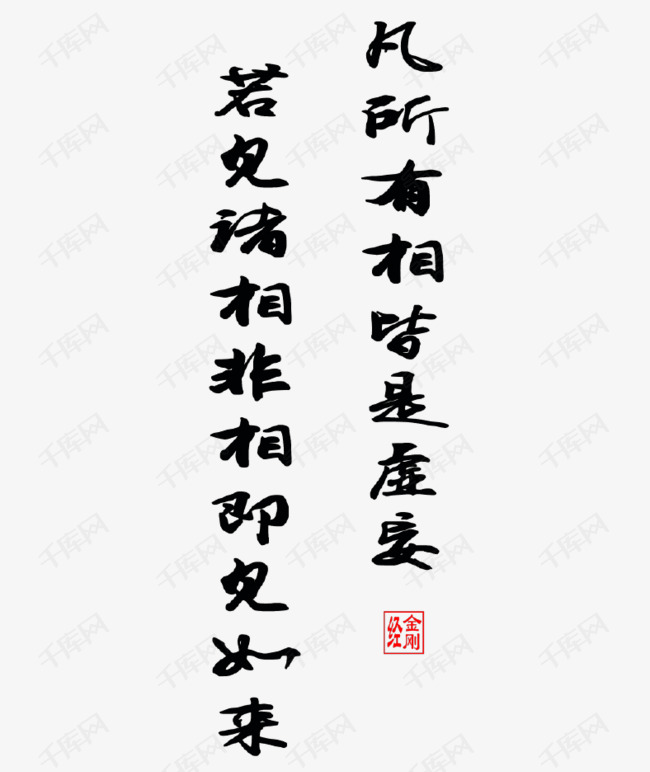 凡所有相皆是虚妄
若见诸相非相即见如来
金刚
经
千库网